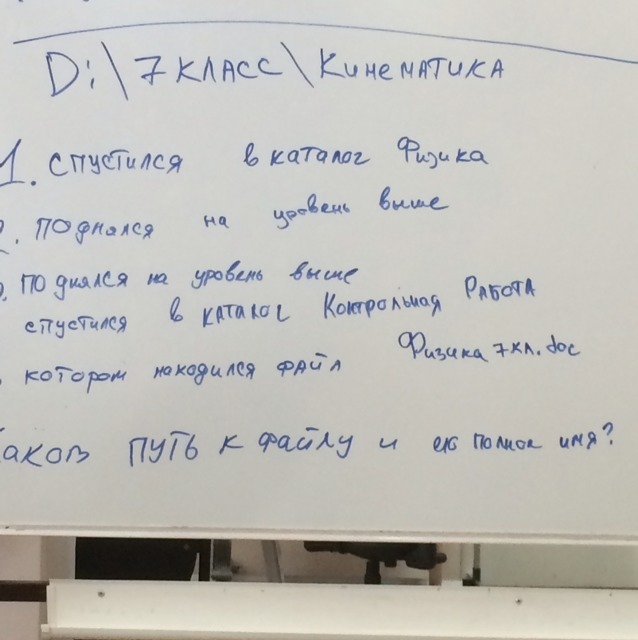 D:\7 класс\Кинематика
1. спустился в каталог Физика
2. поднялся на уровень выше
поднялся на уровень выше
спустился в каталог Контрольная Работа
котором находился файл Физика 7кл.doc
каков путь к файлу и его полное имя?